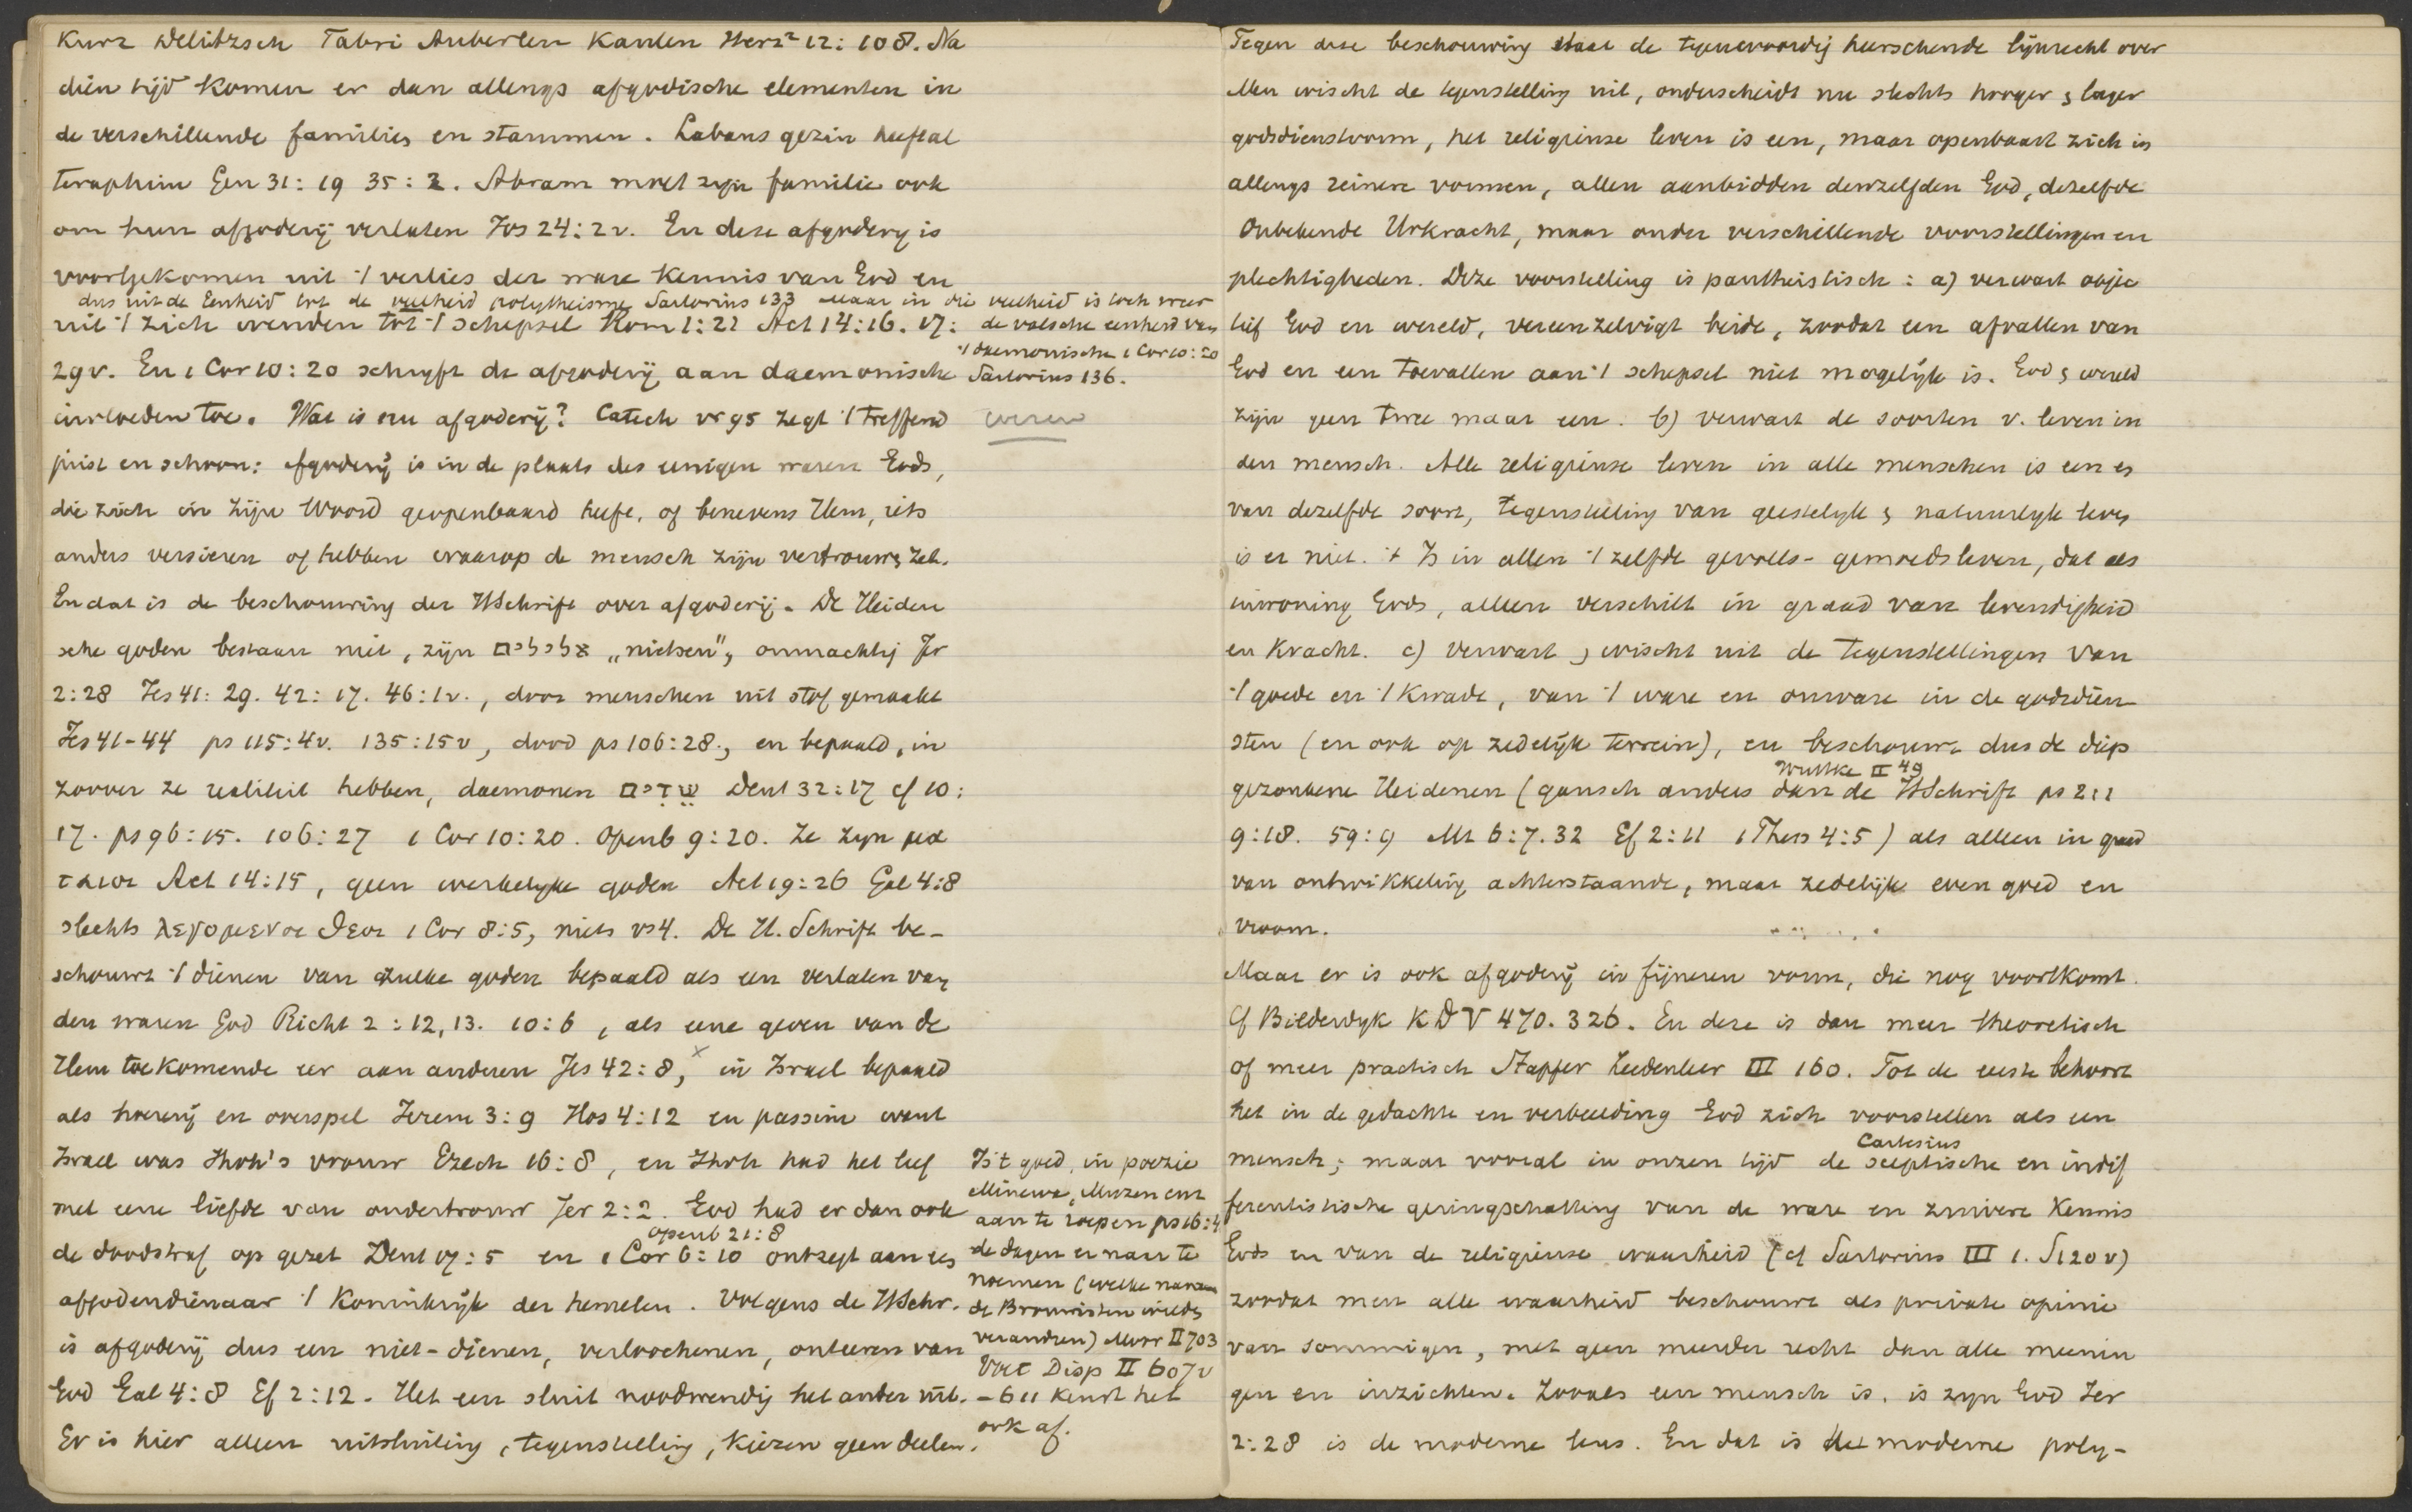 Kurz Delitzsch Fabri Auberlen Kaulen Herz² 12: 108. Na
dien tijd komen er dan allengs afgodische elementen in
de verschillende families en stammen. Labans gezin heeft al
teraphim Gen 31: 19 35: 2. Abram moet zijn familie ook
om hun afgoderij verlaten Jos 24: 2v. En deze afgodery is
voortgekomen uit 't verlies der ware kennis van God en
dus uit de Eenheid tot de veelheid polytheisme Sartorius 133 Maar in die veelheid is toch weer
de valsche eenheid van
't daemonische 1 Cor 10: 20
Sartorius 136.
uit 't zich wenden tot 't schepsel Rom 1: 21 Act 14: 16. 17:
29v. En 1 Cor 10: 20 schryft de afgoderij aan daemonische
invloeden toe. Wat is nu afgoderij? Catech vr 95 zegt 't treffend
juist en schoon: afgoderij is in de plaats des eenigen waren Gods,
die zich in zijn Woord geopenbaard heeft, of benevens Hem, iets
anders versieren of hebben waarop de mensch zijn vertrouwen zet.
En dat is de beschouwing der HSchrift over afgoderij. De Heiden
sche goden bestaan niet, zijn אלילים „nietsen", onmachtig Jer
2: 28 Jes 41: 29. 42: 17. 46: 1v., door menschen uit stof gemaakt
Jes 41-44 ps 115: 4v. 135: 15v, dood ps 106: 28., en bepaald, in
zoover ze realiteit hebben, daemonen שֵׁדִים Deut 32: 17 cf 10:
17. ps 96: 15. 106: 27 1 Cor 10: 20. Openb 9: 20. Ze zyn μα
ταιοι Act 14: 15, geen werkelyke goden Act 19: 26 Gal 4: 8
slechts λεγομενοι θεοι 1 Cor 8: 5, niets vs 4. De H. Schrift be-
schouwt 't dienen van zulke goden bepaald als een verlaten van
den waren God Richt 2: 12, 13. 10: 6, als eene geven van de
Hem toekomende eer aan anderen Jes 42: 8, x in Israel bepaald
als hoererij en overspel Jerem 3: 9 Hos 4: 12 en passim want
Israel was Jhvh's vrouw Ezech 16: 8, en Jhvh had het lief
met eene liefde van ondertrouw Jer 2: 2. God had er dan ook
openb 21: 8
de doodstraf op gezet Deut 17: 5 en 1 Cor 6: 10 ontzegt aan
afgodendienaar 't koninkrijk der hemelen. Volgens de HSchr.
is afgoderij dus een niet-dienen, verloochenen, onteeren van
God Gal 4: 8 Ef 2: 12. Het een sluit noodwendig het ander uit.
Er is hier alleen uitsluiting, tegenstelling, kiezen geen deelen.
Is 't goed, in poezie
Minerva, Muzen enz
aan te roepen ps 16: 4
de dagen er naar te
noemen (welke namen
de Brownisten wilden
veranderen) Moor II 703
Voet Disp II 607v
- 611 keurt het
ook af.
Tegen deze beschouwing staat de tegenwoordig heerschende lijnrecht over
Men wischt de tegenstelling uit, onderscheidt nu slechts hooger & lager
godsdienstvorm, het religieuse leven is een, maar openbaart zich in
allengs reinere vormen, allen aanbidden denzelfden God, dezelfde
Onbekende Urkracht, maar onder verschillende voorstellingen en
plechtigheden. Deze voorstelling is pantheistisch: a) verwart objec
tief God en wereld, vereenzelvigt beide, zoodat een afvallen van
God en een toevallen aan 't schepsel niet mogelijk is. God & wereld
zijn geen twee maar een. b) verwart de soorten v. leven in
den mensch. Alle religieuse leven in alle menschen is een en
van dezelfde soort, tegenstelling van geestelyk & natuurlyk leven
is er niet. 't Is in allen 't zelfde gevoels-gemoedsleven, dat als
inwoning Gods, alleen verschilt in graad van levendigheid
en kracht. c) verwart & wischt uit de tegenstellingen van
't goede en 't kwade, van 't ware en onware in de godsdien
sten (en ook op zedelijk terrein), en beschouwt dus de diep
Wuttke II 49
gezonkene Heidenen (gansch anders dan de HSchrift ps 2: 1
9: 18. 59: 9 Mt 6: 7. 32 Ef 2: 11 1 Thess 4: 5) als alleen in graad
van ontwikkeling achterstaande, maar zedelijk even goed en
vroom.
Maar er is ook afgoderij in fijneren vorm, die nog voortkomt.
Cf Bilderdyk K D V 470. 326. En deze is dan meer theoretisch
of meer practisch Stapfer Zedenleer III 160. Tot de eerste behoort
het in de gedachte en verbeelding God zich voorstellen als een
Cartesius
mensch; maar vooral in onzen tijd de sceptische en indif
ferentistische geringschatting van de ware en zuivere kennis
Gods en van de religieuse waarheid (cf Sartorius III 1. S 120 v)
zoodat men alle waarheid beschouwt als private opinie
van sommigen, met geen meerder recht dan alle meenin
gen en inzichten. Zooals een mensch is, is zyn God Jer
2: 28 is de moderne leus. En dat is het moderne poly-